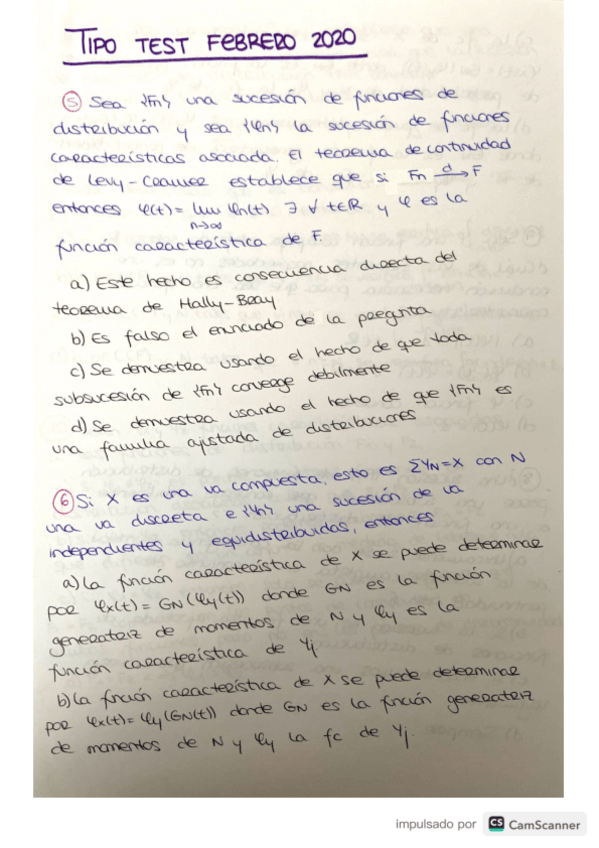 TIPO TEST FEBRERO 2020
⑤ Sea {Fn} una sucesión de funciones de
distribución y sea {φn} la sucesión de funciones
características asociada. El teorema de continuidad
de Levy-Cramer establece que si Fn d→ F
entonces φ(t) = lim φn(t) ∃ ∀ t∈R y φ es la
n→∞
función característica de F.
a) Este hecho es consecuencia directa del
teorema de Hally-Bray
b) Es falso el enunciado de la pregunta
c) Se demuestra usando el hecho de que toda
subsucesión de {Fn} converge debilmente
d) Se demuestra usando el hecho de que {Fn} es
una familia ajustada de distribuciones
⑥ Si X es una va compuesta, esto es ΣYN=X con N
una va discreta e {Yn} una sucesión de va
independientes y equidistribuidas, entonces
a) La función característica de X se puede determinar
por φx(t) = GN(φy(t)) donde GN es la función
generatriz de momentos de N y φy es la
función característica de Yj
b) La función característica de X se puede determinar
por φx(t) = φy(GN(t)) donde GN es la función generatriz
de momentos de N y φy la fc de Yj.
impulsado por CS CamScanner